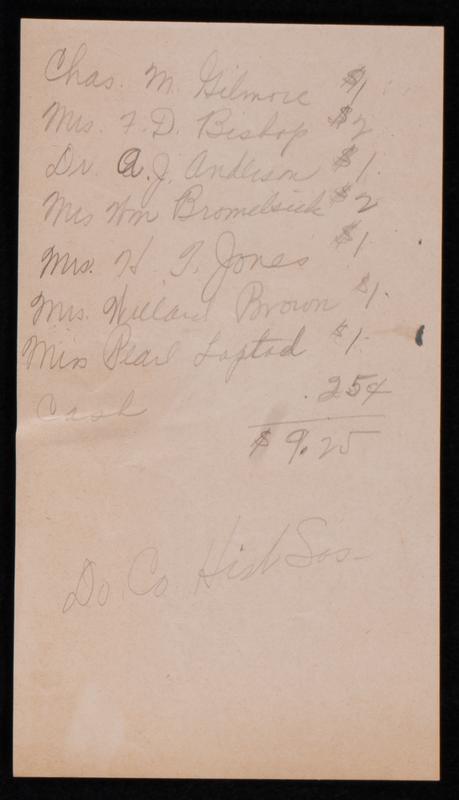 Chas. M. Gilmore $1.
Mrs. F. D. Bishop $2
Dr. A. J. Anderson $1.
Mrs Wm Bromelsick $2
Mrs. H. T. Jones $1
Mrs. Willard Brown $1.
Miss Pearl Laptad $1.
Cash .25¢
$ 9.25
Do. Co. Hist Soc